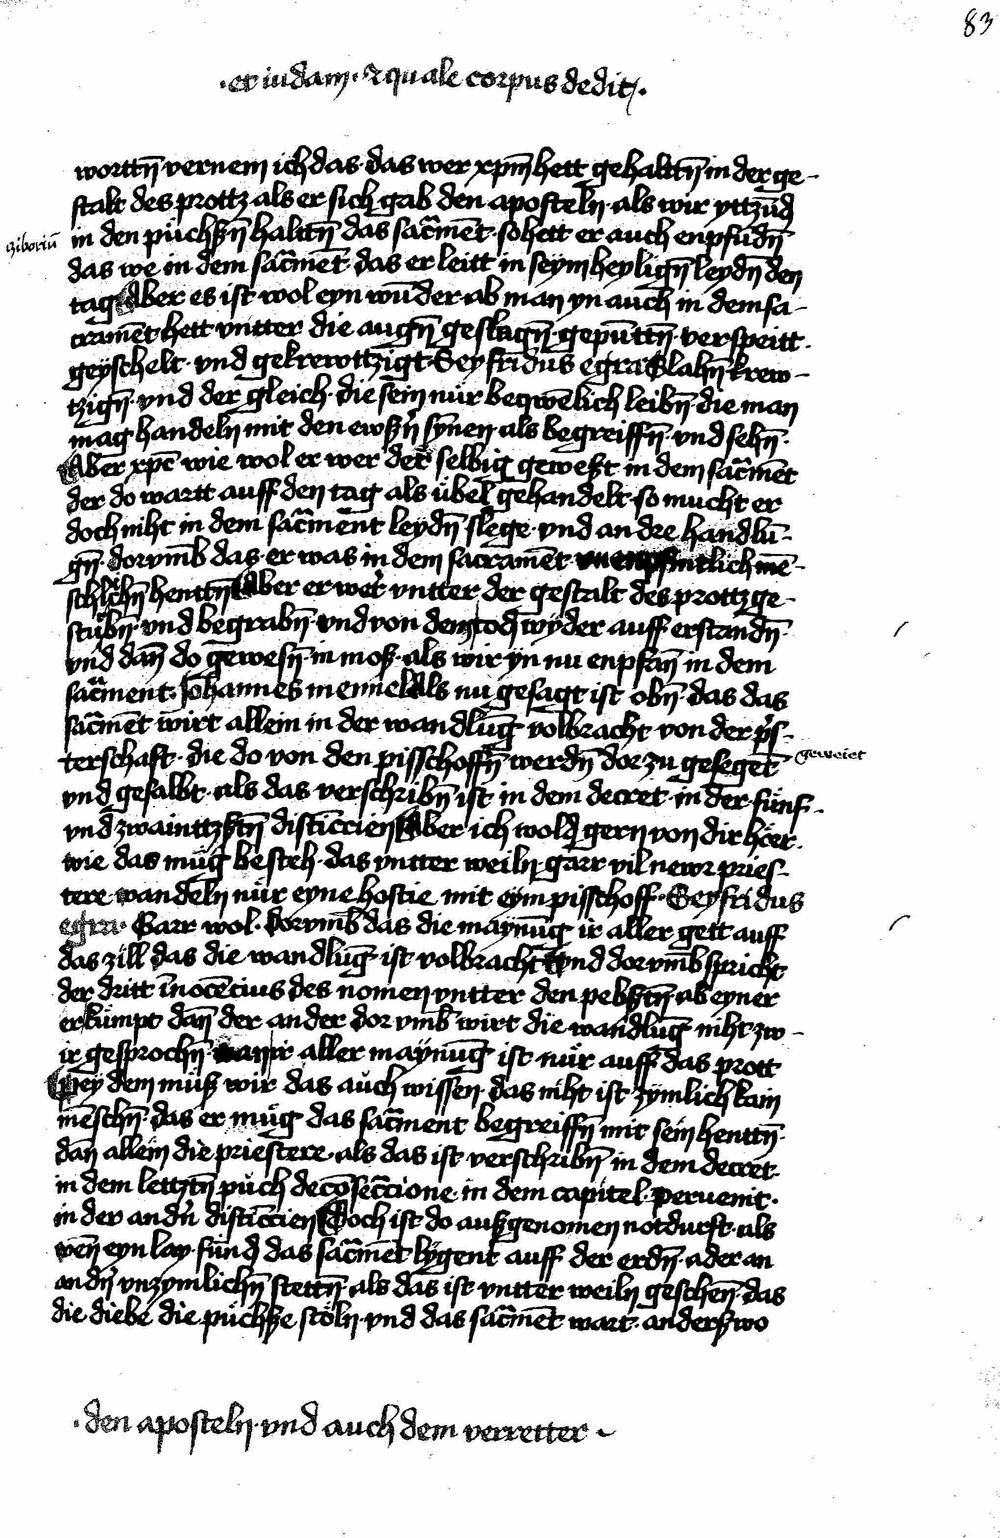 83
·et iudam· & quale corpus dedit·
worttn̄ vernem ich das· das wer xp̄m hett gehalttn̄ in der ge-
stalt des prottz als er sich gab den aposteln· als wir yttzūd
ziboriū
in den püchßn̄ halttn̄ das sac̄ment· so hett er auch enpfūdn̄
das we in dem sac̄mēt· das er leitt in seym heylign̄ leydn̄ den
tag Aber es ist wol eyn wūder· ab man yn auch in dem sa-
cramēt hett vntter die augn̄ geslagn̄· gepūttn̄· verspeitt·
geyschelt· vnd gekrewttzigt· Seyfridus egra Slahn̄ krew-
tzign̄· vnd der gleich· die sein nür beqwēlich leibn̄· die man
mag handeln mit den ewßn̄ syn̄en· als begreiffn̄· vnd sehn̄·
Aber xp̄c wie wol er wer der selbig geweßt in dem sac̄mēt
der do wartt auff den tag als übel gehandelt· so mucht er
doch niht in dem sac̄ment leydn̄ slege· vnd andre handlū-
gn̄· dorvmb das· er was in dem sacramēt vnenpfintlich mē-
schlichn̄ henttn̄ Aber er wer vntter der gestalt des prottz ge-
stürbn̄· vnd begrabn̄· vnd von dem tod wyder auff erstandn̄·
vnd dan̄ do gewesn̄· in moß· als wir yn nu enpfan̄ in dem
sac̄ment· Johannes mennel Als nu gesagt ist obn̄· das das
sac̄mēt wirt allein in der wandlūg volbracht von der p̄s-
terschaft· die do von den pisschoffn̄ werdn̄ dorzu gesegēt
geweiet
vnd gesalbt· als das verschribn̄ ist in dem decret· in der fünf-
vnd zwainttzstn̄ distinccien Aber ich wold gern von dir hoer·
wie das müg besteh· das vntter weiln garr vil newr pries-
tere wandeln nür eyne hostie mit eym pisschoff· Seyfridus
egra· Garr wol· dorvmb das die maynūg ir aller gett auff
das zill das die wandlūg ist volbracht Vnd dorvmb spricht
der dritt in̄ocēcius des nomen vntter den pebstn̄ ab eyner
er kümpt dan̄ der ander dorvmb wirt die wandlūg niht zw-
ir gesprochn̄· wann ir aller maynūg ist nür auff das prott
Bey dem müß wir das auch wissen· das niht ist zymlich kain
mēschn̄· das er müg das sac̄ment begreiffn̄ mit sein henttn̄·
dan̄ allein die priestere· als das ist verschribn̄ in dem decret·
in dem lettztn̄ püch de cōsec̄cione in dem capitel pervenit·
in der andn̄ distinccien Doch ist do außgenomen notdurft· als
wen̄ eyn lay fünd das sac̄mēt lygent auff der erdn̄· ader an
andn̄ vnzymlichn̄ stettn̄· als das ist vntter weiln geschen̄· das
die diebe die püchße stöln· vnd das sac̄mēt wart· anderßwo
·den aposteln· vnd auch dem verretter·